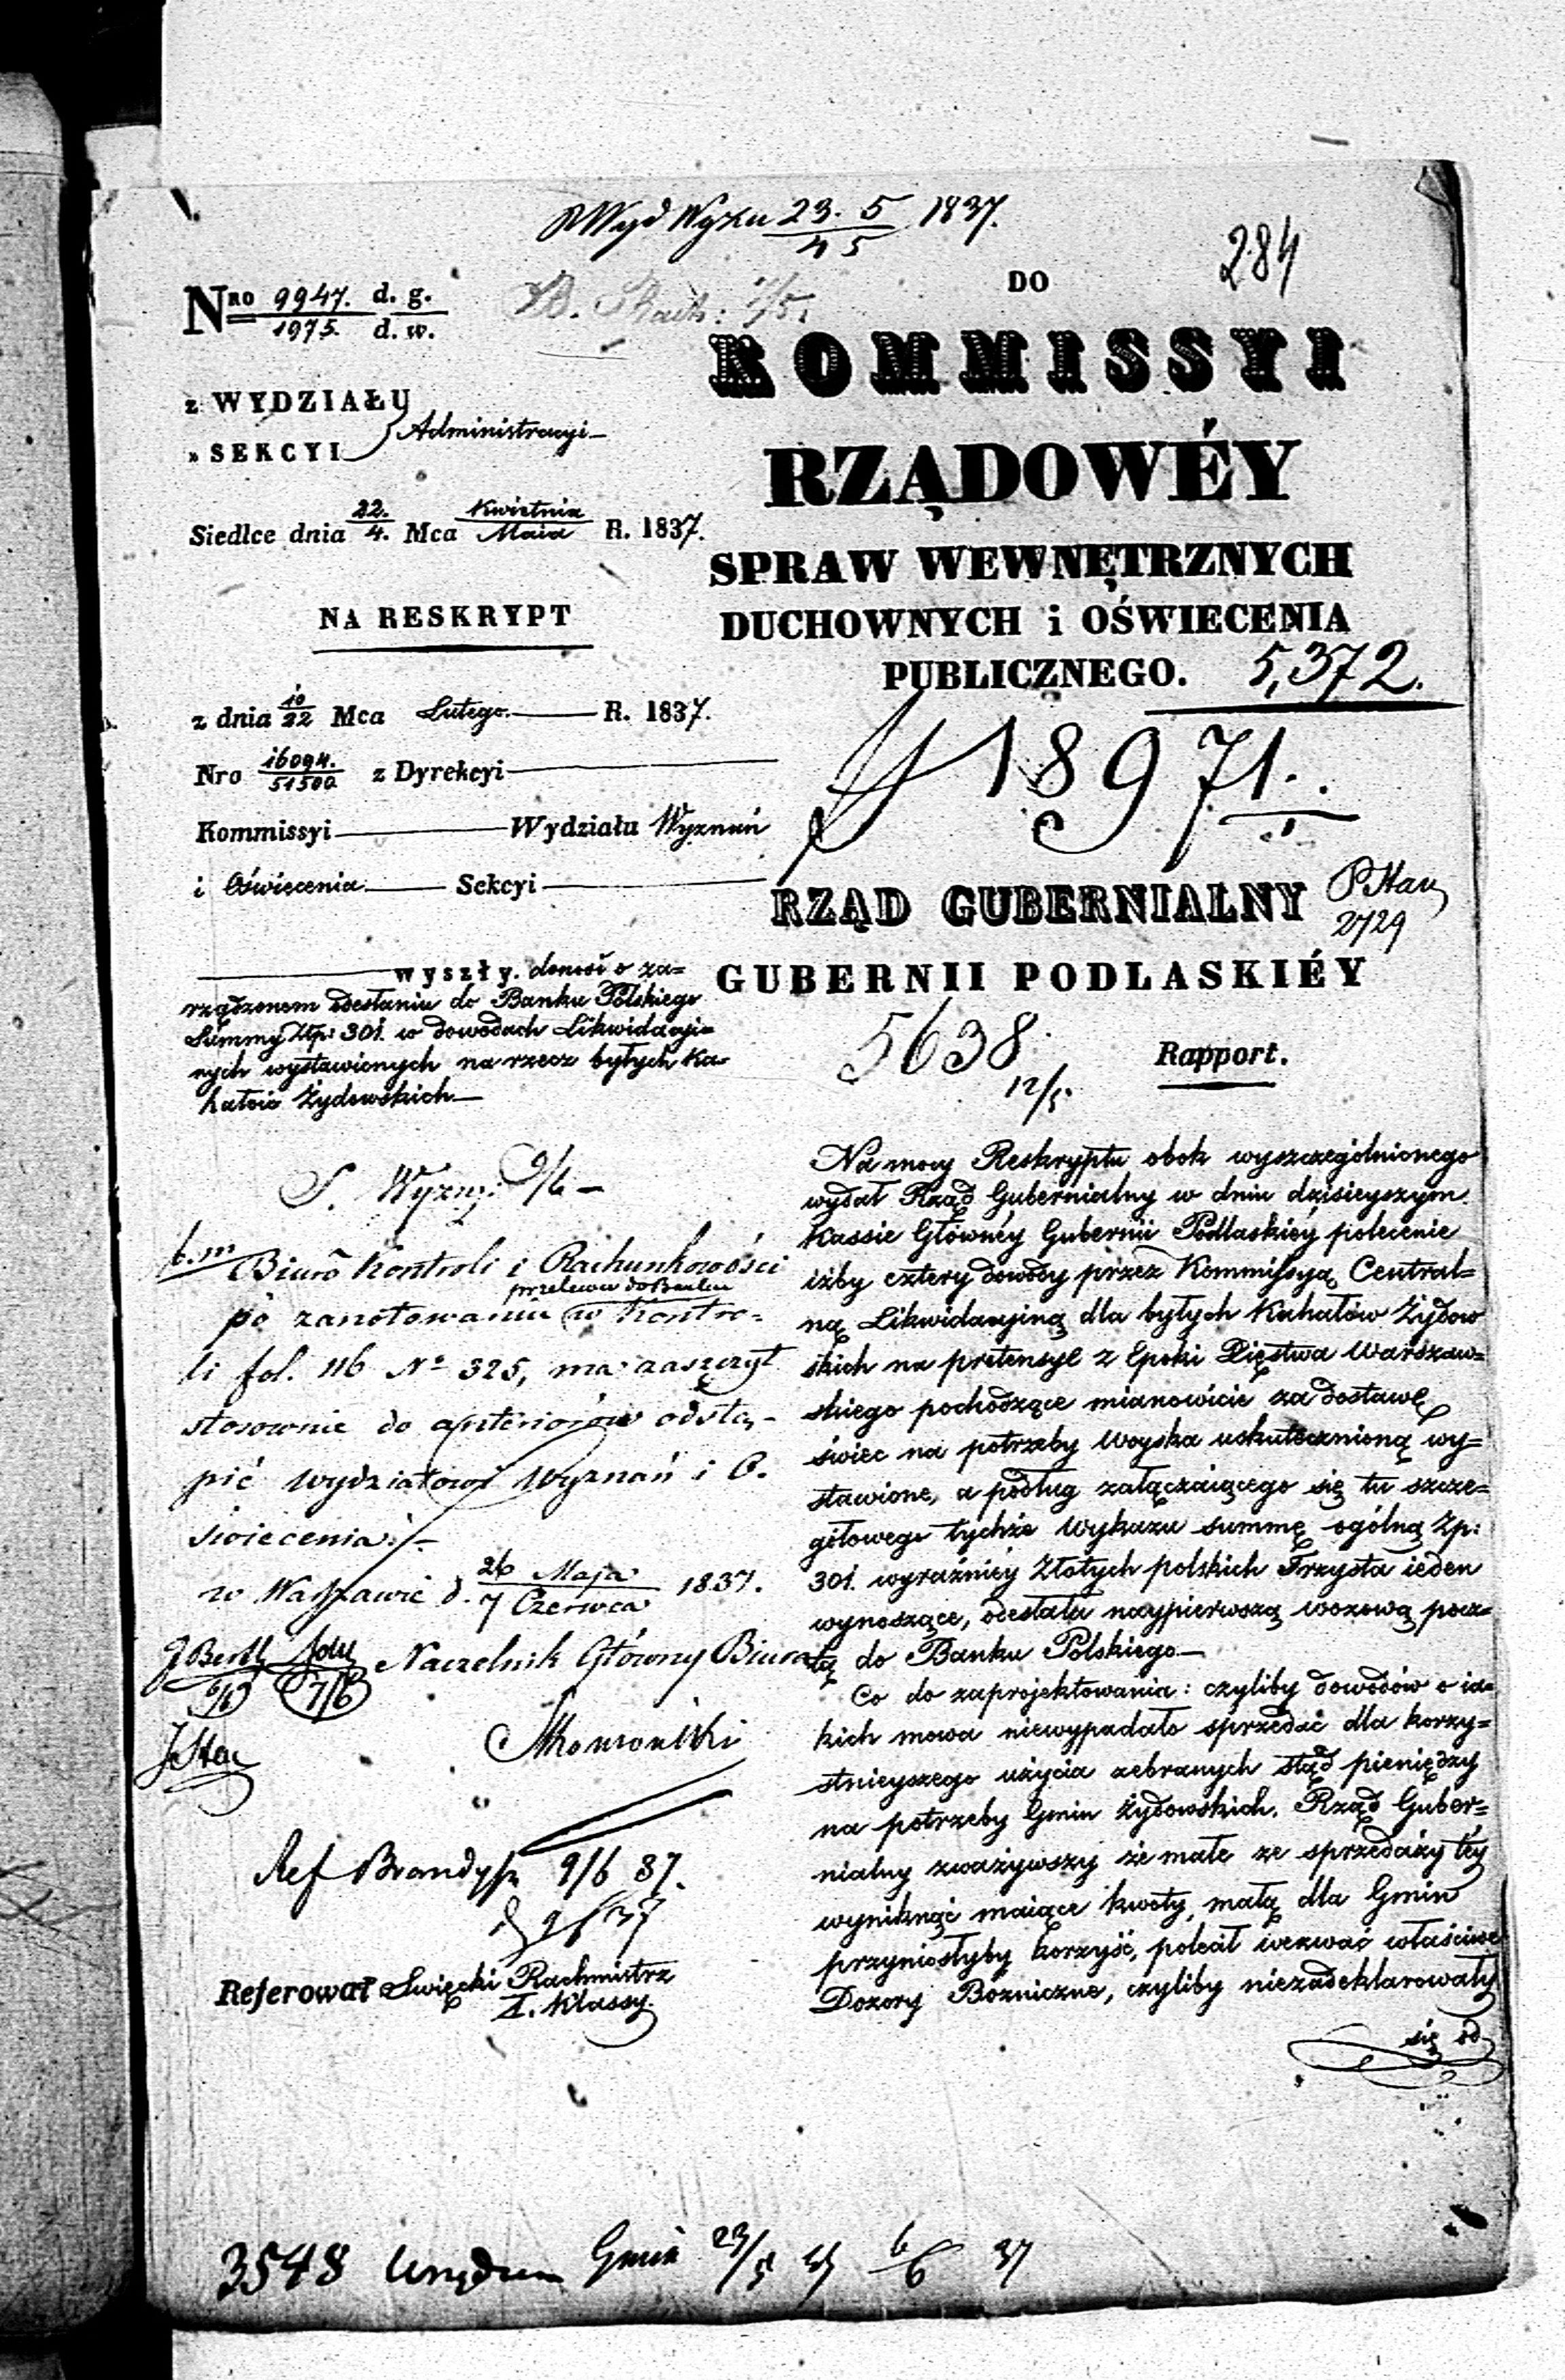 Wyd Wyzn 23. 5 1837.
284
Nro 9947. d. g.
1975. d. w.
DO
KOMMISSYI
RZĄDOWÉY
SPRAW WEWNĘTRZNYCH
DUCHOWNYCH i OŚWIECENIA
PUBLICZNEGO. 5,372.
18971.
z WYDZIAŁU
» SEKCYI Administracyi
Siedlce dnia 22./4. Mca Kwietnia/Maia R. 1837.
NA RESKRYPT
z dnia 10/22 Mca Lutego R. 1837.
Nro 16094./51500 z Dyrekcyi
Kommissyi Wydziału Wyznań
i Oświecenia Sekcyi
wyszły. donosi o za=
rządzonem odesłaniu do Banku Polskiego
Summy Złp: 301. w dowodach Likwidacyi=
nych wystawionych na rzecz byłych Ka=
hałów Żydowskich
S. Wyzn: 9/6
b.m Biuro Kontroli i Rachunkowości
przelewu do Banku
po zanotowaniu w Kontro-
li fol. 116 No 325, ma zaszczyt
stosownie do anteriorów odstą-
pić Wydziałowi Wyznań i O.
świecenia
w Warszawie d. 26 Maja/7 Czerwca 1837.
Naczelnik Główny Biura
7/6
Ref Brandys 9/6 37.
Referował Święcki Rachmistrz
I. Klassy.
RZĄD GUBERNIALNY
2729
GUBERNII PODLASKIÉY
5638
12/5.
Rapport.
Na mocy Reskryptu obok wyszczególnionego
wydał Rząd Gubernialny w dniu dzisieyszym
Kassie Główney Gubernii Podlaskiey polecenie
iżby cztery dowody przez Kommissyą Central=
ną Likwidacyiną dla byłych Kahałów Żydow
skich na pretensye z Epoki Xięstwa Warszaw=
skiego pochodzące mianowicie za dostawę
świec na potrzeby Woyska uskutecznioną wy=
stawione, a podług załączaiącego się tu szcze=
gółowego tychże Wykazu summę ogólną Zp:
301. wyraźniey Złotych polskich Trzysta ieden
wynoszące, odesłała naypierwszą wozową pocz=
tą do Banku Polskiego
Co do zaprojektowania: czyliby dowodów o ia=
kich mowa niewypadało sprzedać dla korzy=
stnieyszego użycia zebranych stąd pieniędzy
na potrzeby Gmin Żydowskich. Rząd Guber=
nialny zważywszy że małe ze sprzedaży tey
wyniknąć maiące kwoty, małą dla Gmin
przyniosłyby korzyść, polecił wezwać właściwe
Dozory Bożniczne, czyliby niezadeklarowały
się od
3548 Gmin 23/5 6/6 37